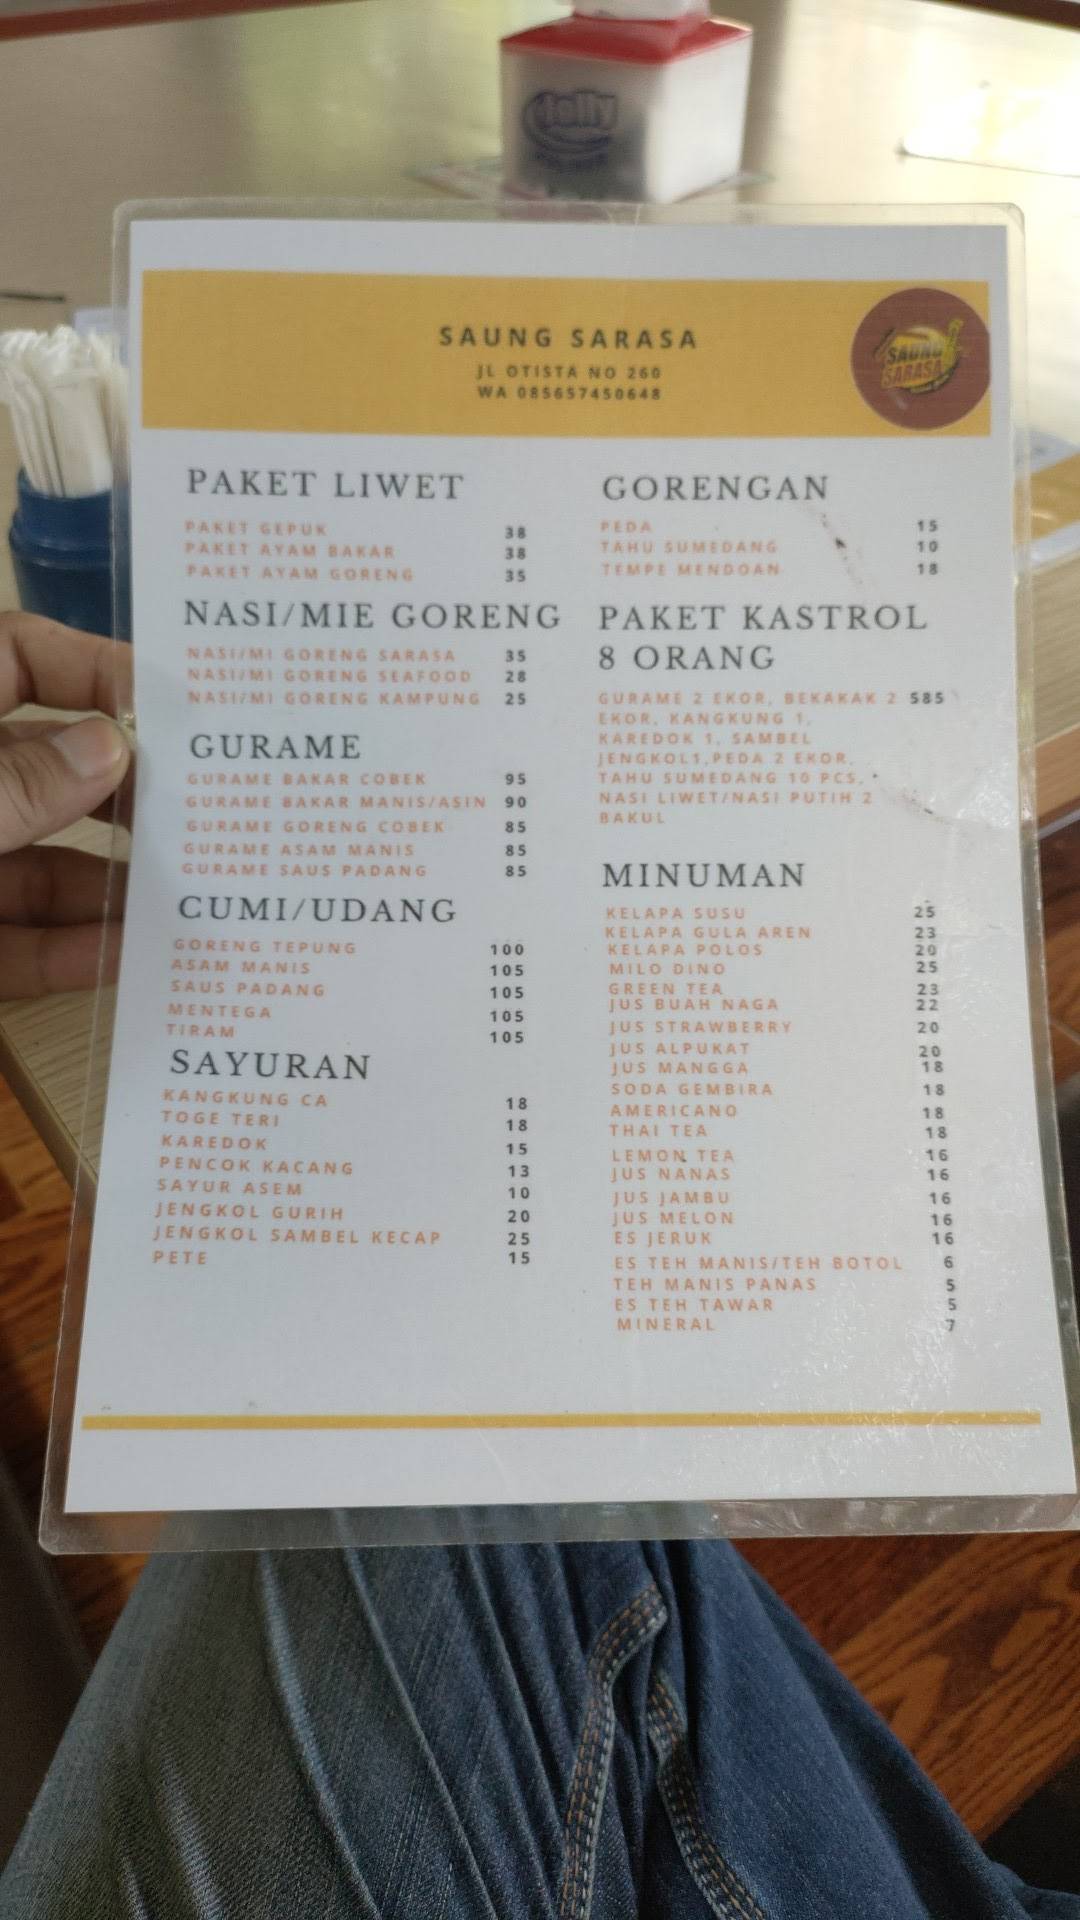 Jolly
SAUNG SARASA
JL OTISTA NO 260
WA 085657450648
SAUNG
SARASA
PAKET LIWET
PAKET GEPUK 38
PAKET AYAM BAKAR 38
PAKET AYAM GORENG 35
NASI/MIE GORENG
NASI/MI GORENG SARASA 35
NASI/MI GORENG SEAFOOD 28
NASI/MI GORENG KAMPUNG 25
GURAME
GURAME BAKAR COBEK 95
GURAME BAKAR MANIS/ASIN 90
GURAME GORENG COBEK 85
GURAME ASAM MANIS 85
GURAME SAUS PADANG 85
CUMI/UDANG
GORENG TEPUNG 100
ASAM MANIS 105
SAUS PADANG 105
MENTEGA 105
TIRAM 105
SAYURAN
KANGKUNG CA 18
TOGE TERI 18
KAREDOK 15
PENCOK KACANG 13
SAYUR ASEM 10
JENGKOL GURIH 20
JENGKOL SAMBEL KECAP 25
PETE 15
GORENGAN
PEDA 15
TAHU SUMEDANG 10
TEMPE MENDOAN 18
PAKET KASTROL
8 ORANG
GURAME 2 EKOR, BEKAKAK 2 585
EKOR, KANGKUNG 1,
KAREDOK 1, SAMBEL
JENGKOL1,PEDA 2 EKOR,
TAHU SUMEDANG 10 PCS,
NASI LIWET/NASI PUTIH 2
BAKUL
MINUMAN
KELAPA SUSU 25
KELAPA GULA AREN 23
KELAPA POLOS 20
MILO DINO 25
GREEN TEA 23
JUS BUAH NAGA 22
JUS STRAWBERRY 20
JUS ALPUKAT 20
JUS MANGGA 18
SODA GEMBIRA 18
AMERICANO 18
THAI TEA 18
LEMON TEA 16
JUS NANAS 16
JUS JAMBU 16
JUS MELON 16
ES JERUK 16
ES TEH MANIS/TEH BOTOL 6
TEH MANIS PANAS 5
ES TEH TAWAR 5
MINERAL 7